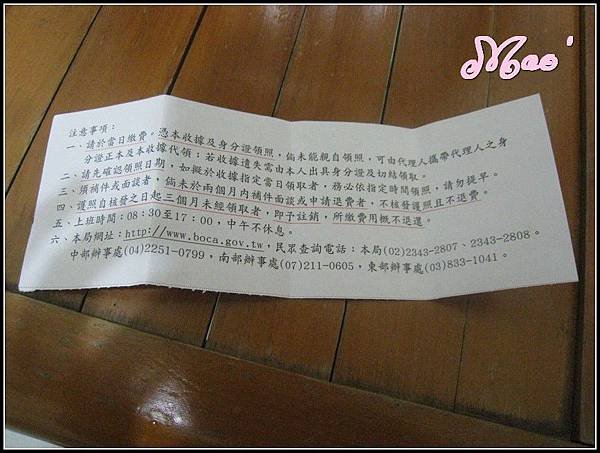 Mao'
注意事項：
一、請於當日繳費。憑本收據及身分證領照，倘未能親自領照，可由代理人攜帶代理人之身
分證正本及本收據代領；若收據遺失需由本人出具身分證及切結領取。
二、請先確認領照日期，如擬於收據指定當日領取者，務必依指定時間領照，請勿提早。
三、須補件或面談者，倘未於兩個月內補件面談或申請退費者，不核發護照且不退費。
四、護照自核發之日起三個月未經領取者，即予註銷，所繳費用概不退還。
五、上班時間：08：30至17：00，中午不休息。
六、本局網址：http://www.boca.gov.tw，民眾查詢電話：本局(02)2343-2807、2343-2808。
中部辦事處(04)2251-0799，南部辦事處(07)211-0605，東部辦事處(03)833-1041。